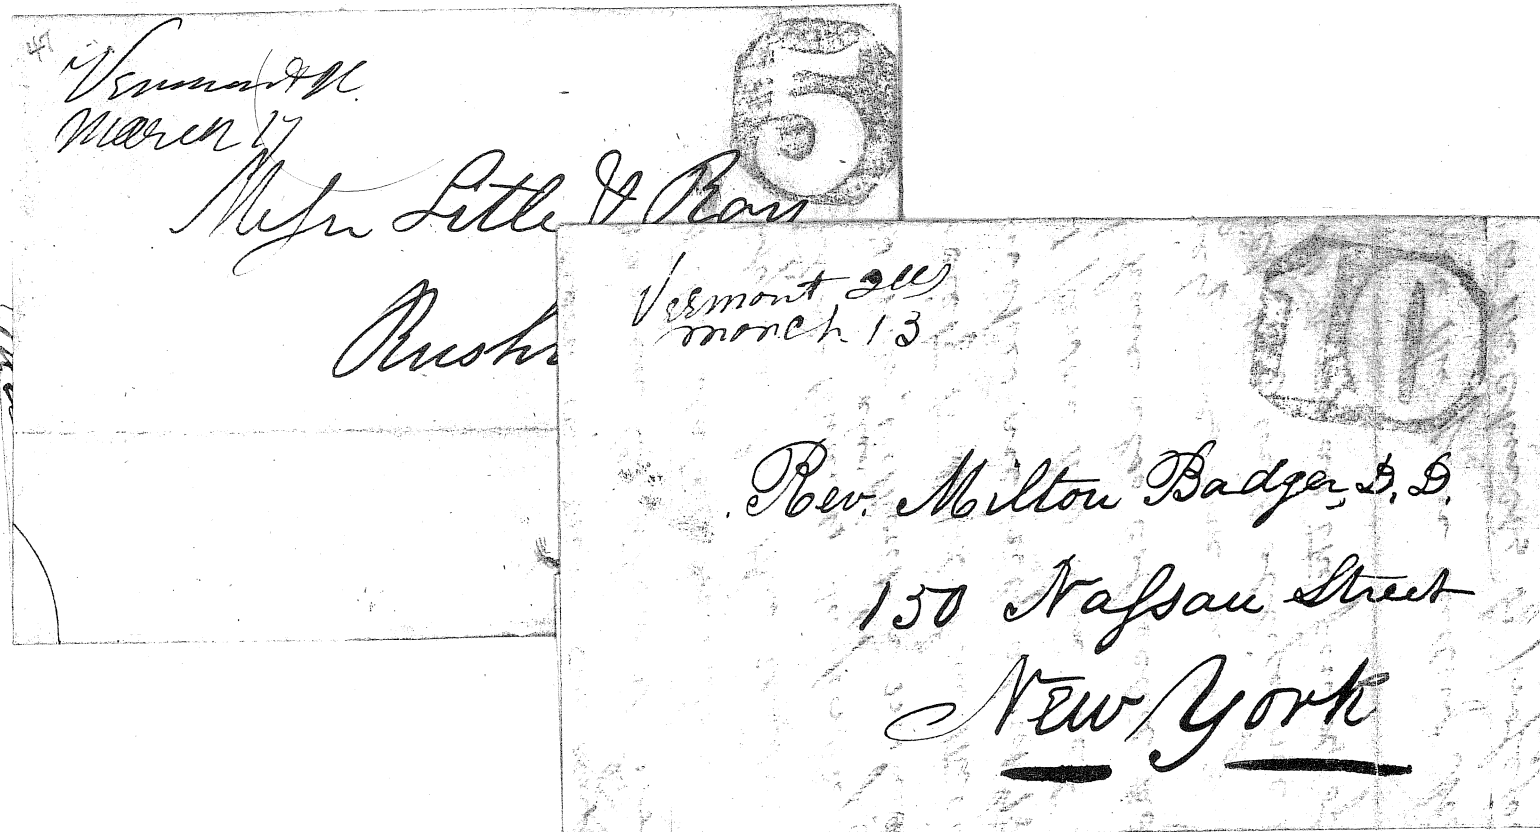 47
Vermont Ill.
March 17
5
Messrs Little & Ray
Rush
Vermont Ills
March 13
10
Rev. Milton Badger, D. D.
150 Nassau Street
New York